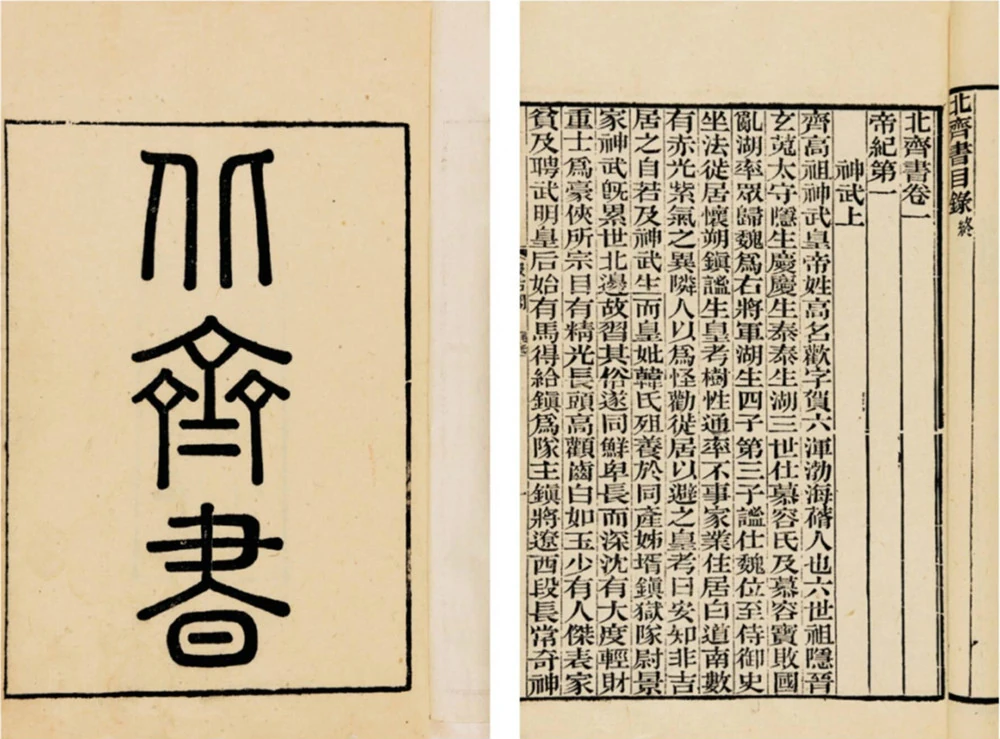 北齊書
北齊書目錄 終
北齊書卷一
帝紀第一
神武上
齊高祖神武皇帝姓高名歡字賀六渾渤海蓨人也六世祖隱晉
玄菟太守隱生慶慶生泰泰生湖三世仕慕容氏及慕容寶敗國
亂湖率眾歸魏爲右將軍湖生四子第三子謐仕魏位至侍御史
坐法徙居懷朔鎭謐生皇考樹性通率不事家業住居白道南數
有赤光紫氣之異隣人以爲怪勸徙居以避之皇考曰安知非吉
居之自若及神武生而皇妣韓氏殂養於同產姊壻鎭獄隊尉景
家神武旣累世北邊故習其俗遂同鮮卑長而深沈有大度輕財
重士爲豪俠所宗目有精光長頭高顴齒白如玉少有人傑表家
貧及聘武明皇后始有馬得給鎭爲隊主鎭將遼西段長常奇神